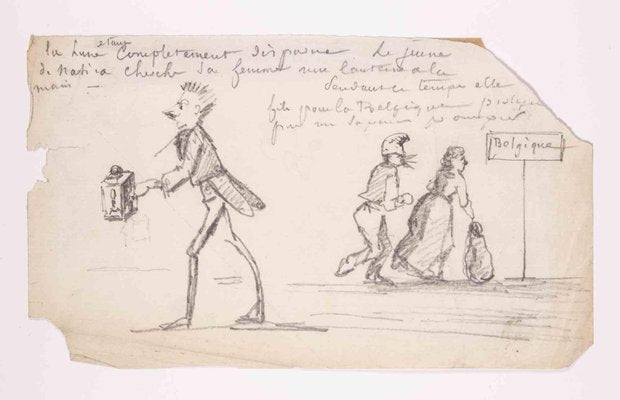 la lune étant complètement disparue Le jeune
de Nativa cherche sa femme une lanterne à la
main —
Pendant ce temps elle
file pour la Belgique
pour un sapeur pompier
Belgique